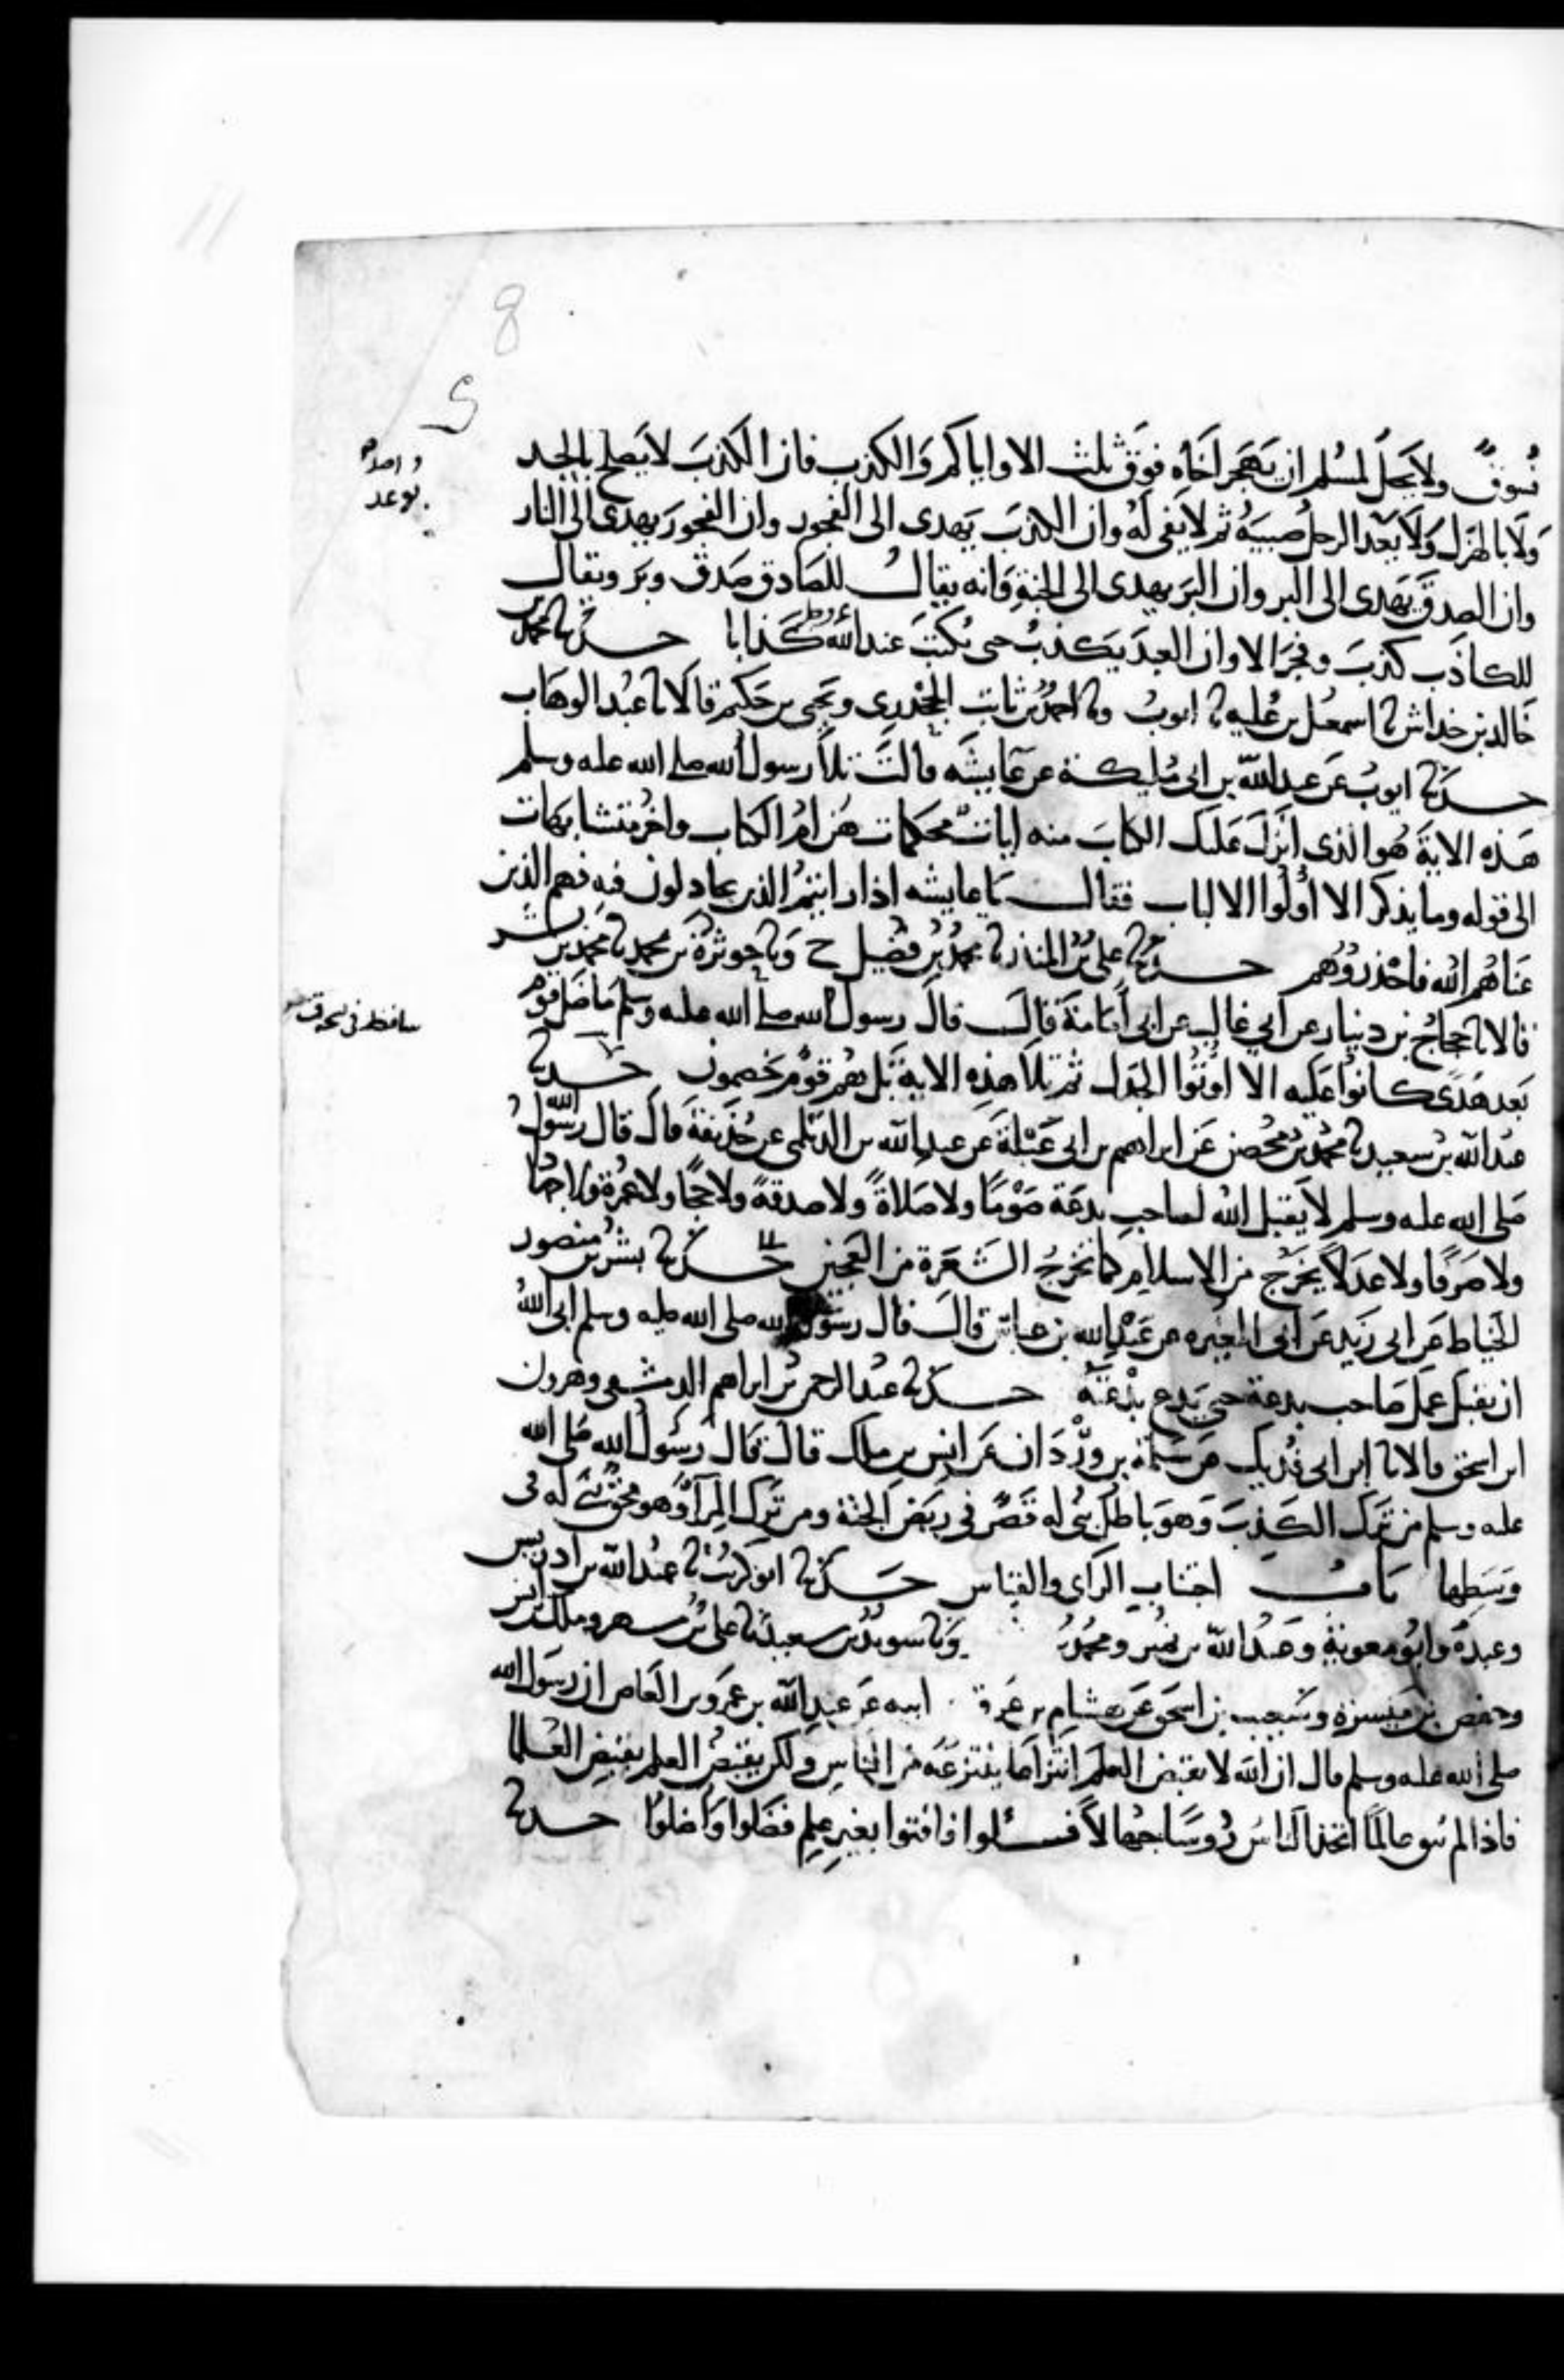 8
فسوق ولا يحل لمسلم ان يهجر اخاه فوق ثلث الا واياكم والكذب فان الكذب لا يصلح بالجد
ولا بالهزل ولا يعد الرجل صبيه ثم لا يفي له وان الكذب يهدى الى الفجور وان الفجور يهدى الى النار
وان الصدق يهدى الى البر وان البر يهدى الى الجنة وانه يقال للصادق صدق وبر ويقال
للكاذب كذب وفجر الا وان العبد يكذب حتى يكتب عند الله كذابا حدثنا محمد بن
خالد بن خداش نا اسمعيل بن علية نا ايوب ونا احمد بن ثابت الجحدرى ويحيى بن حكيم قالا نا عبد الوهاب
حدثنا ايوب عن عبد الله بن ابى مليكة عن عايشه قالت تلا رسول الله صلى الله عليه وسلم
هذه الاية هو الذى انزل عليك الكتاب منه ايات محكمات هن ام الكتاب واخر متشابهات
الى قوله وما يذكر الا اولوا الالباب فقال يا عايشه اذا رايتم الذين يجادلون فيه فهم الذين
عناهم الله فاحذروهم حدثنا على بن المنذر نا محمد بن فضيل ح ونا حوثرة بن محمد نا محمد بن بشر
قالا نا حجاج بن دينار عن ابي غالب عن ابى امامة قال قال رسول الله صلى الله عليه وسلم ما ضل قوم
ساقط فى
بعد هدى كانوا عليه الا اوتوا الجدل ثم تلا هذه الاية بل هم قوم خصمون حدثنا
عبد الله بن سعيد نا محمد بن محصن عن ابراهيم بن ابى عبلة عن عبد الله بن الديلمى عن حذيفة قال قال رسول الله
صلى الله عليه وسلم لا يقبل الله لصاحب بدعة صوما ولا صلاة ولا صدقة ولا حجا ولا عمرة ولا جهادا
ولا صرفا ولا عدلا يخرج من الاسلام كما تخرج الشعرة من العجين حدثنا بشر بن منصور
الخياط عن ابى زيد عن ابى المغيره عن عبد الله بن عباس قال قال رسول الله صلى الله عليه وسلم ابى الله
ان يقبل عمل صاحب بدعة حتى يدع بدعته حدثنا عبد الرحمن بن ابراهيم الدمشقى وهرون
ابن اسحق قالا نا ابن ابى فديك عن سلمة بن وردان عن انس بن ملك قال قال رسول الله صلى الله
عليه وسلم من ترك الكذب وهو باطل بنى له قصر فى ربض الجنة ومن ترك المرآ وهو محق بنى له فى
وسطها باب اجتناب الراى والقياس حدثنا ابو كريب نا عبد الله بن ادريس
وعبدة وابو معوية وعبد الله بن نمير ومحمد ونا سويد بن سعيد نا على بن مسهر وملك بن انس
وحفص بن ميسرة وشعيب بن اسحق عن هشام بن عروة ابيه عن عبد الله بن عمرو بن العاص ان رسول الله
صلى الله عليه وسلم قال ان الله لا يقبض العلم انتزاعا ينتزعه من الناس ولكن يقبض العلم بقبض العلما
فاذا لم يبق عالما اتخذ الناس روسا جهالا فسئلوا فافتوا بغير علم فضلوا واضلوا حدثنا